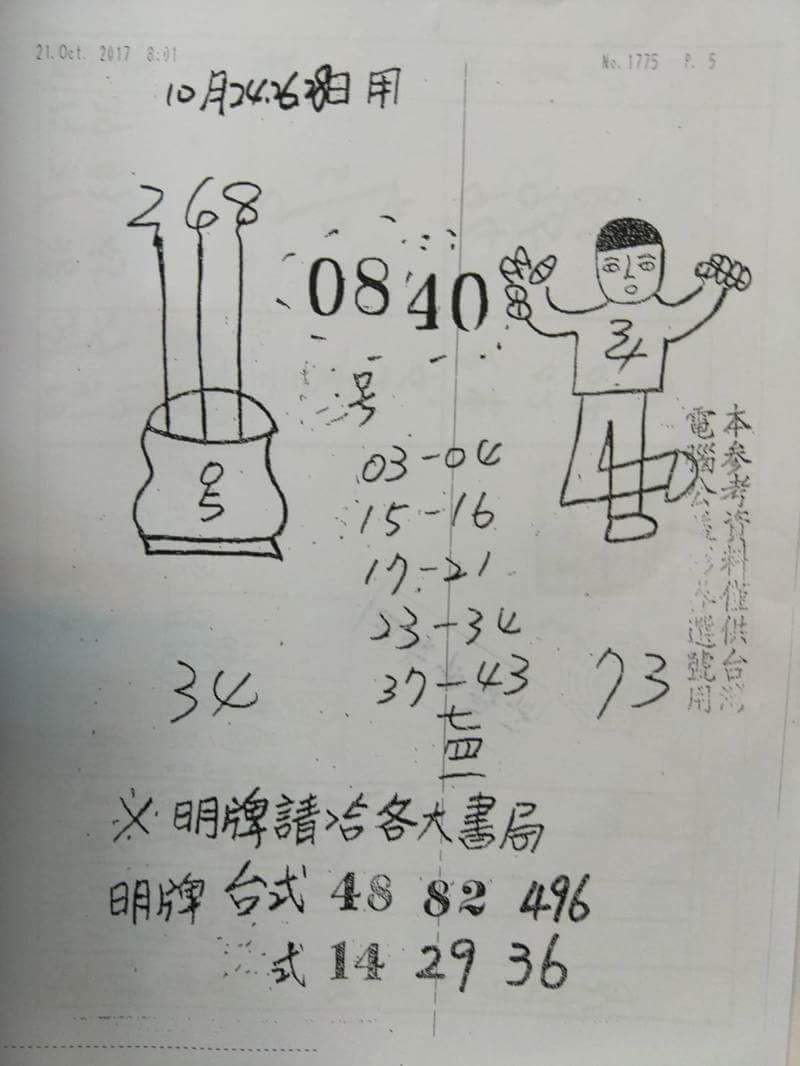 21.Oct. 2017 8:01
No.1775 P. 5
10月24.26.28日用
2 6 8
0840
34
号
05
03-04
15-16
17-21
23-34
37-43
34
73
七
四
一
本參考資料僅供台灣
電腦公選號用
※明牌請洽各大書局
明牌 台式 48 82 496
式 14 29 36